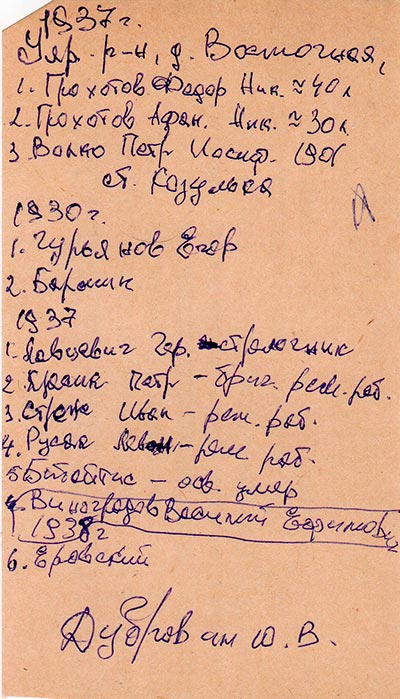 1937 г.
Уяр. р-н, д. Восточная,
1. Грохотов Федор Ник. ≈ 40 л
2. Грохотов Афан. Ник. ≈ 30 л
3 Волко Петр Иосиф. 1901
ст. Козулька
1930 г.
1. Гурьянов Егор
2. Борошик
1937
1. Явцевич Гер. стрелочник
2 Петр – бриг. рем. раб.
3 Иван – рем. раб.
4. Русак – рем раб.
5 – осв. умер
Виноградов Василий Ефимович
1938 г
6. Еровский
Дубровин Ю. В.